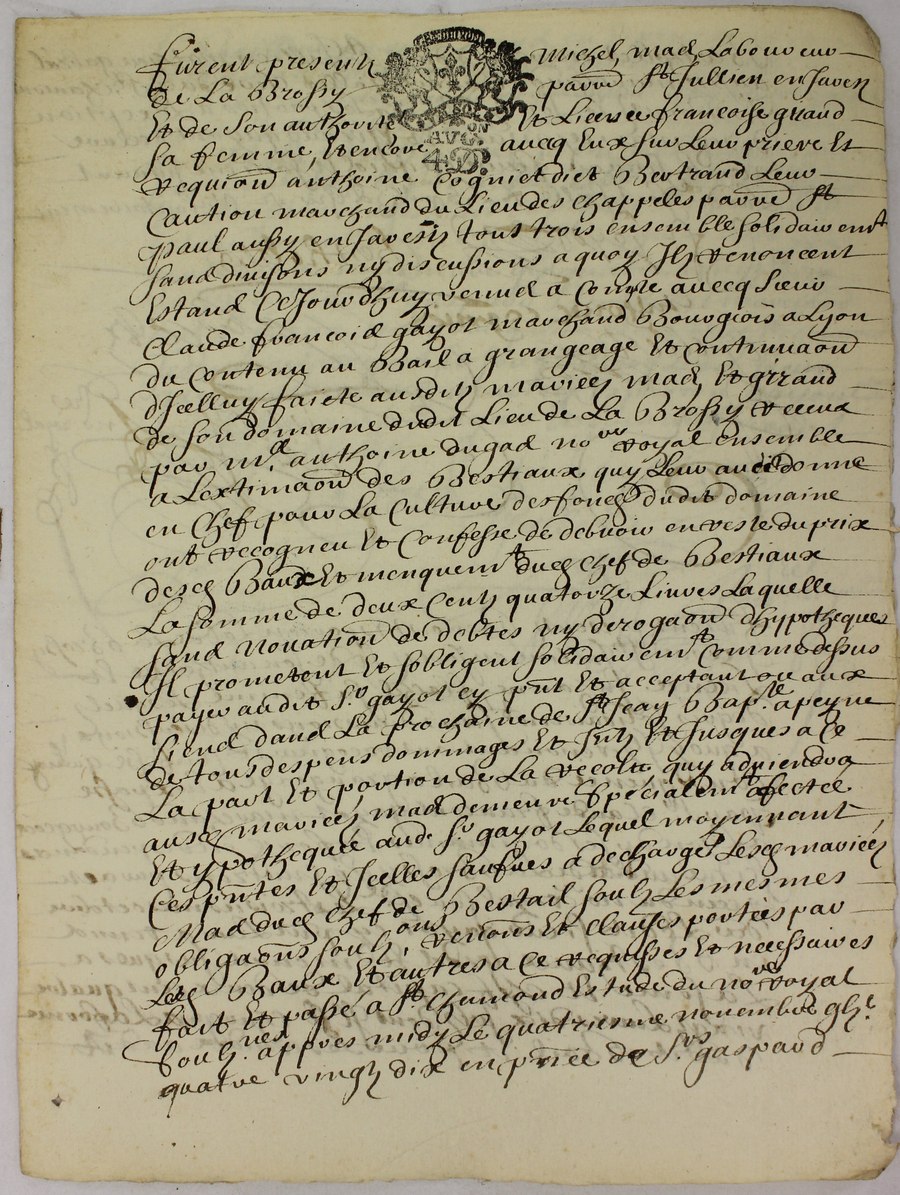 furent presentz Michel mad Laboureur
de La Brossy parre St Jullien en Javetz
Et de son authorité Et Licence francoise girand
sa femme, Et encore aucq Eux sur Leur priere Et
requi͠on anthoine Cogniet dict Bertrand Leur
Caution marchand du Lieu des chappeles parre St
Paul aussy en Javestz tous trois ensemble solidairemt
sans diuisons ny discussions a quoy Ilz renoncent
Estans Ce Jourdhuy venus a Compte auecq Sieur
Claude francois gayot marchand Bourgeois a Lyon
du Contenu au Bail a grangeage Et Continua͠on
d'Icelluy faicte ausditz mariez mad Et girand
de son domaine dudit Lieu de La Brossy receus
par me anthoine dugad nore royal ensemble
a Lextima͠on des Bestiaux quy Leur a esté donné
en Chef pour La Culture des fondz dudit domaine
ont recogneu Et Confessé de debuoir en reste du prix
desdz Baux Et manquemt dudz chef de Bestiaux
La somme de deux Centz quatorze Liures Laquelle
sans Noua͠on de debtes ny deroga͠on d'hypotheques
Il prometent Et sobligent solidairemt Comme dessus
payer audit Sr gayot cy pnt Et acceptant ou aux
siens dans La prochaine de St Jean Bapte a peyne
de tous despens dommages Et Intz Et Jusques a Ce
La part Et portion de La recolte quy adviendra
ausdz mariez mad demeure Spécialemt afectée
Et ypothequée aud Sr gayot Lequel moyennant
Ces pntes Et Icelles sauf͠ues a dechargé Lesdz mariéz
Mad dudz chef de Bestail soulz Les mesmes
obliga͠ons soulz.ons reno͠ns Et Clauses portées par
Lesdz Baux Et autres a Ce requises Et necessaires
fait Et passé a St chamond Estude du nore royal
soulz.né appres midy Le quatriesme nouembre gbc
quatre vingtz dix en pn͠ce de Srs gaspard
AVG.
4 D.